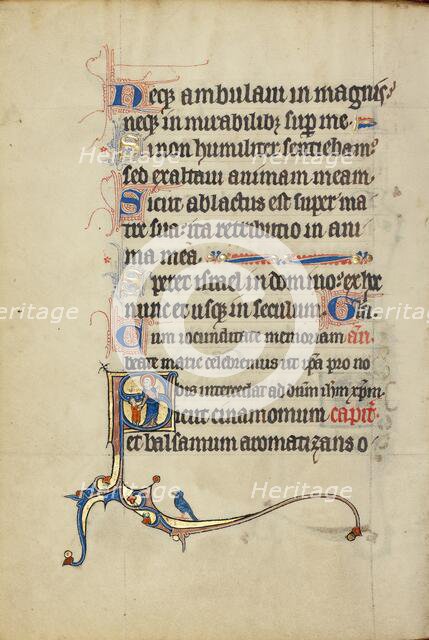 Neq; ambulaui in magnis.
neq; in mirabilib; sup me.
Si non humiliter sentiebam.
sed exaltaui animam meam.
Sicut ablactus est super ma
tre sua. ita retributio in ani
ma mea.
Speret israel in domino. ex hc
nunc et usq; in seculum. Gla
Cum iocunditate memoriam an.
beate marie celebremus ut ipa pro no
bis intercedat ad dnm ihm xpm.
Sicut cinamomum capit.
et balsamum aromatizans o
Heritage Images
Heritage Images
Heritage Images
Heritage Images
Heritage Images
Heritage Images